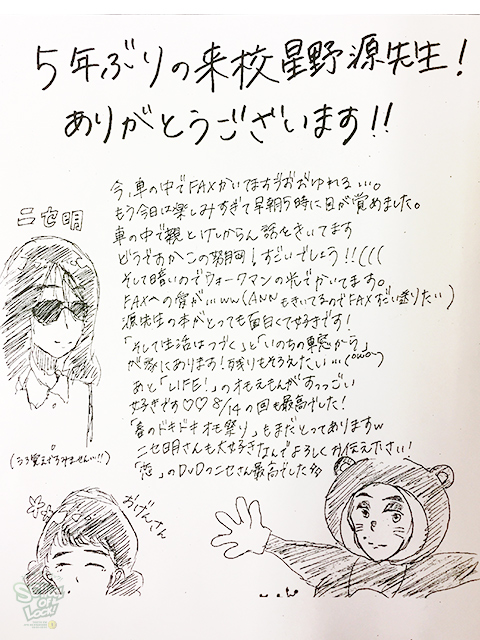 5年ぶりの来校星野源先生!
ありがとうございます!!
今、車の中でFAXかいてますうおおゆれる…。
もう今日は楽しみすぎて早朝5時に目が覚めました。
ニセ明
車の中で親とけしからん話をきいてます
どうですかこの
すごいでしょう!!(((
そして暗いのでウォークマンの光でかいてます。
FAXへの愛が…ww(ANNもきいてるのでFAX
源先生の本がとっても面白くて好きです!
「そして生活はつづく」と「いのちの車窓から」
が家にあります!残りもそろえたい…(
あと「LIFE!」のオモえもんがすっごい
好きです♡♡8/14の回も最高でした!
「春のドキドキオモ祭り」もまだとってありますw
ニセ明さんも大好きなんでよろしくお伝え下さい!
「恋」のDVDのニセさん最高でした
(うろ覚えですみません…!!)
おげんさん
SCHOOL OF LOCK!